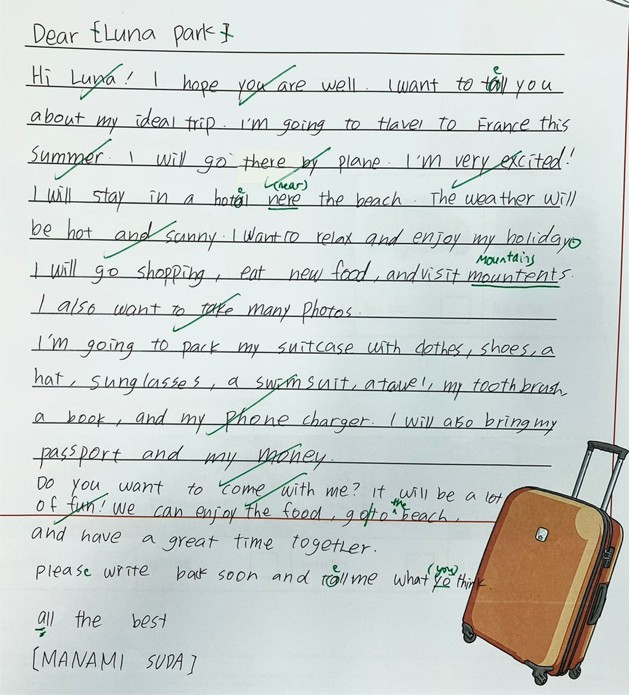 Dear [Luna park]
Hi Luna! I hope you are well. I want to tell you
about my ideal trip. I'm going to travel to France this
summer. I will go there by plane. I'm very excited!
(near)
I will stay in a hotel nere the beach. The weather will
be hot and sunny. I want to relax and enjoy my holiday.
mountains
I will go shopping, eat new food, and visit mountents.
I also want to take many photos.
I'm going to pack my suitcase with clothes, shoes, a
hat, sunglasses, a swimsuit, a towel, my toothbrush
a book, and my phone charger. I will also bring my
passport and my money.
Do you want to come with me? It will be a lot
of fun! We can enjoy the food, go to the beach,
and have a great time together.
(you)
please write back soon and tell me what yo think.
all the best
[MANAMI SUDA]